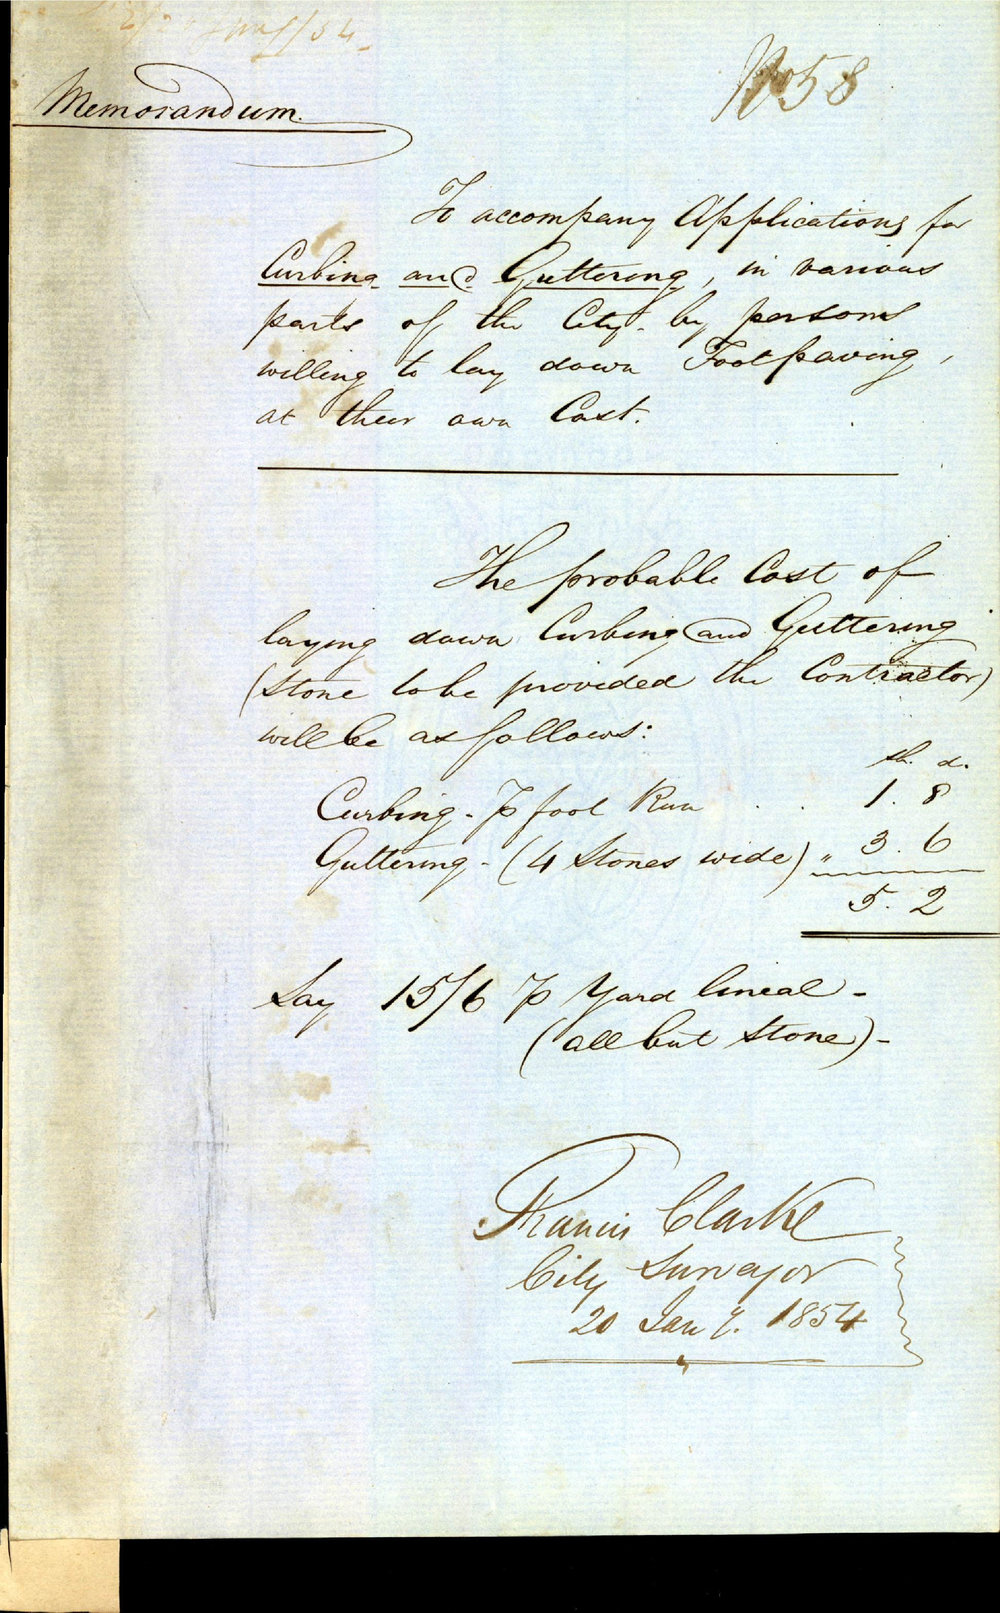 No 58
Memorandum.
To accompany Applications for
Curbing and Guttering, in various
parts of the City - by persons
willing to lay down Footpaving,
at their own Cost.
The probable Cost of
laying down Curbing and Guttering
(Stone to be provided the Contractor)
will be as follows:
sh. d.
Curbing - ⅌ foot Run . . 1. 8
Guttering - (4 Stones wide) " 3. 6
5. 2
Say 15/6 ⅌ Yard lineal -
(all but Stone) -
Francis Clarke
City Surveyor
20 Jany. 1854